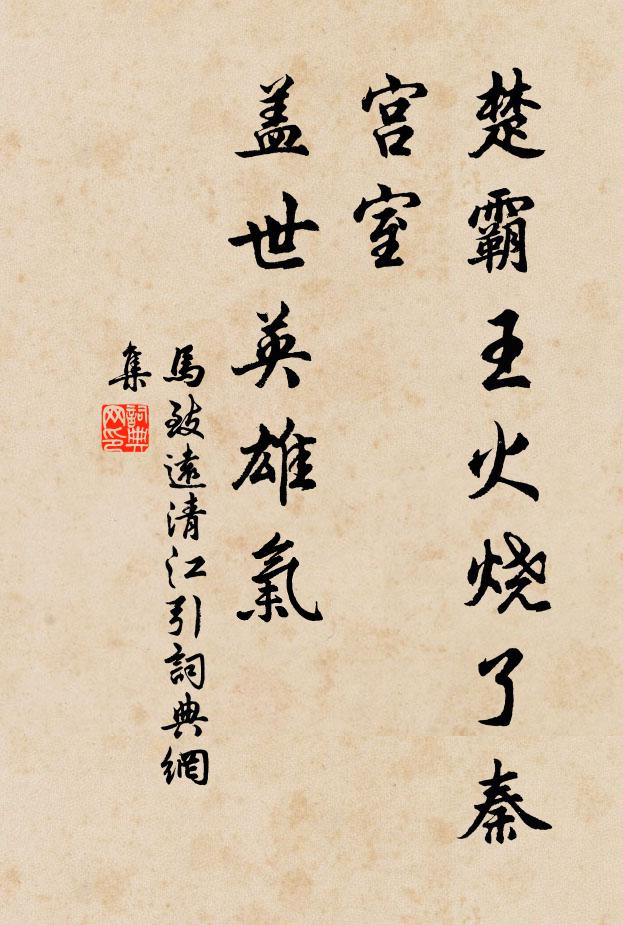 楚霸王火烧了秦
宫室
盖世英雄氣
馬致遠清江引詞典網
集
詞典
网印